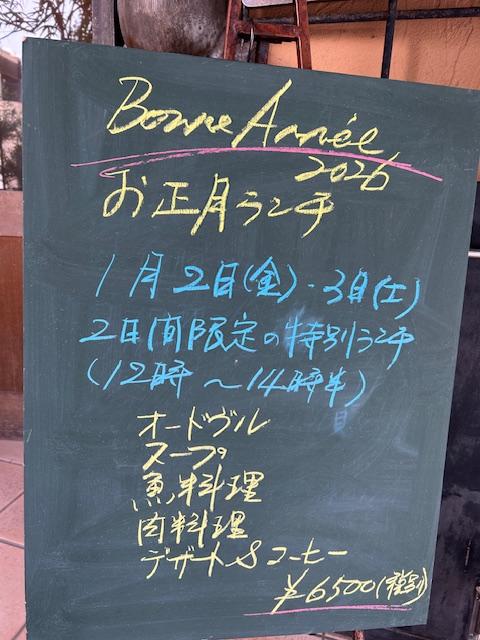 Bonne Année
2026
お正月ランチ
1月2日(金)・3日(土)
2日間限定の特別ランチ
(12時〜14時半)
オードヴル
スープ
魚料理
肉料理
デザート&コーヒー
¥6500(税別)